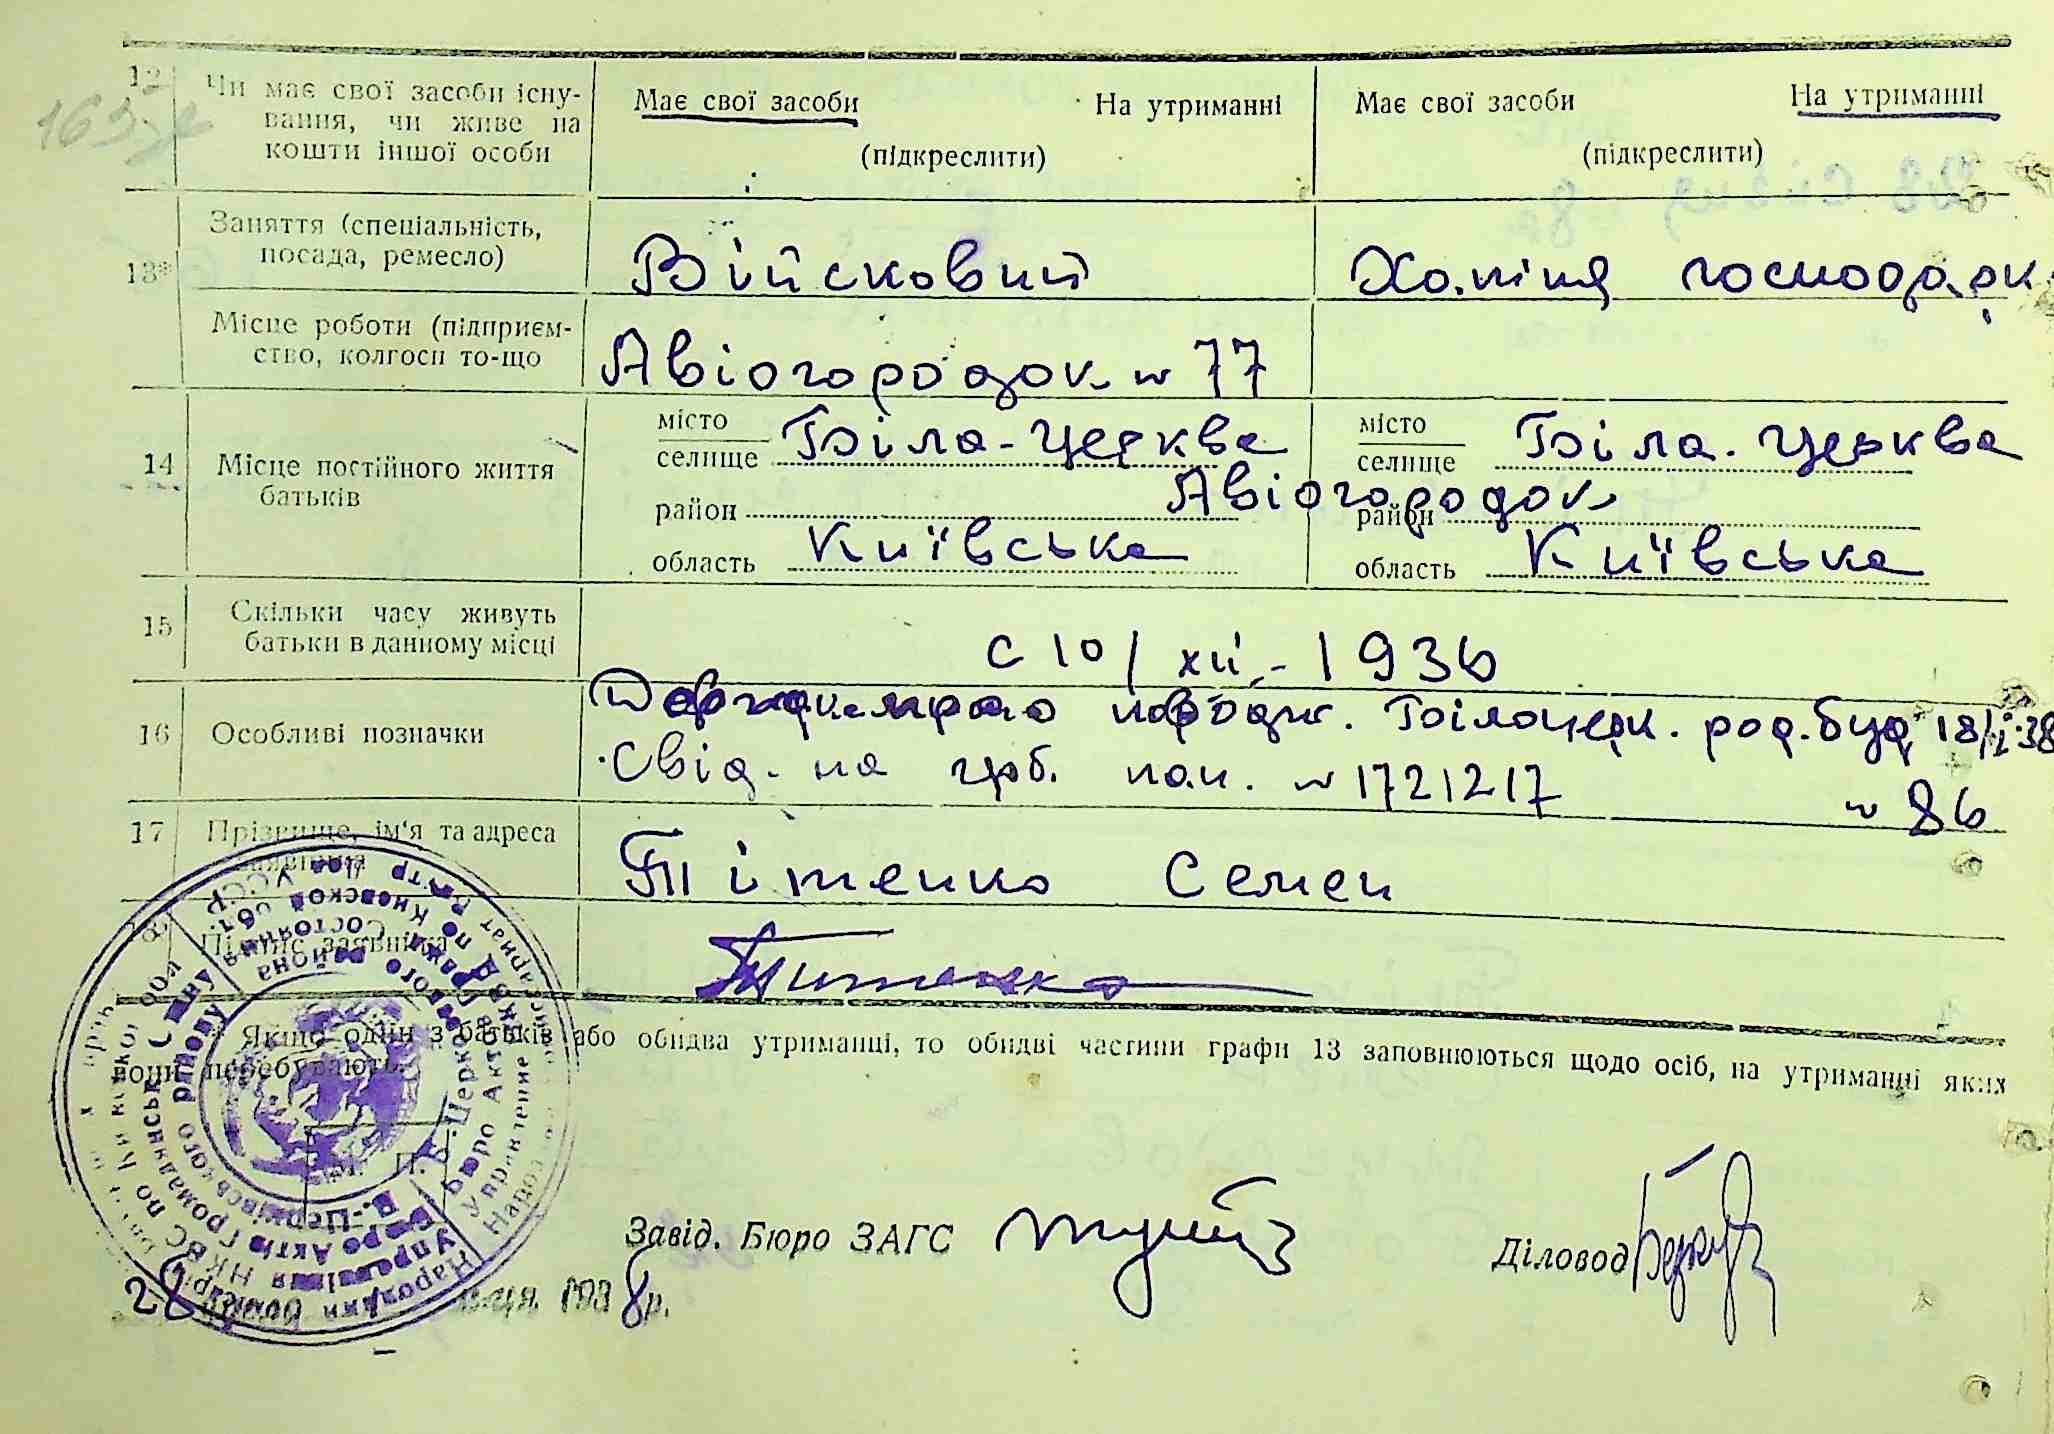 12 Чи має свої засоби існу-
вання, чи живе на
кошти іншої особи
Має свої засоби На утриманні
(підкреслити)
Має свої засоби На утриманні
(підкреслити)
13* Заняття (спеціальність,
посада, ремесло)
Війсковий
господарк.
Місце роботи (підприєм-
ство, колгосп то-що
Авіогородок № 77
14 Місце постійного життя
батьків
місто
селище Біла-Церква
район Авіогородок
область Київська
місто
селище Біла. Церква
район
область Київська
15 Скільки часу живуть
батьки в данному місці
с 10/xii.-1936
16 Особливі позначки
народж. Білоцерк. род. буд 18/I-38
Свід. на № 1721217 № 86
17 Прізвище, ім'я та адреса
заявника
Тітенко Семен
18 Підпис заявника
Титенко
* Якщо один з батьків або обидва утриманці, то обидві частини графи 13 заповнюються щодо осіб, на утриманні яких
вони перебувають.
М. П.
Завід. Бюро ЗАГС
Діловод
28 1938 р.